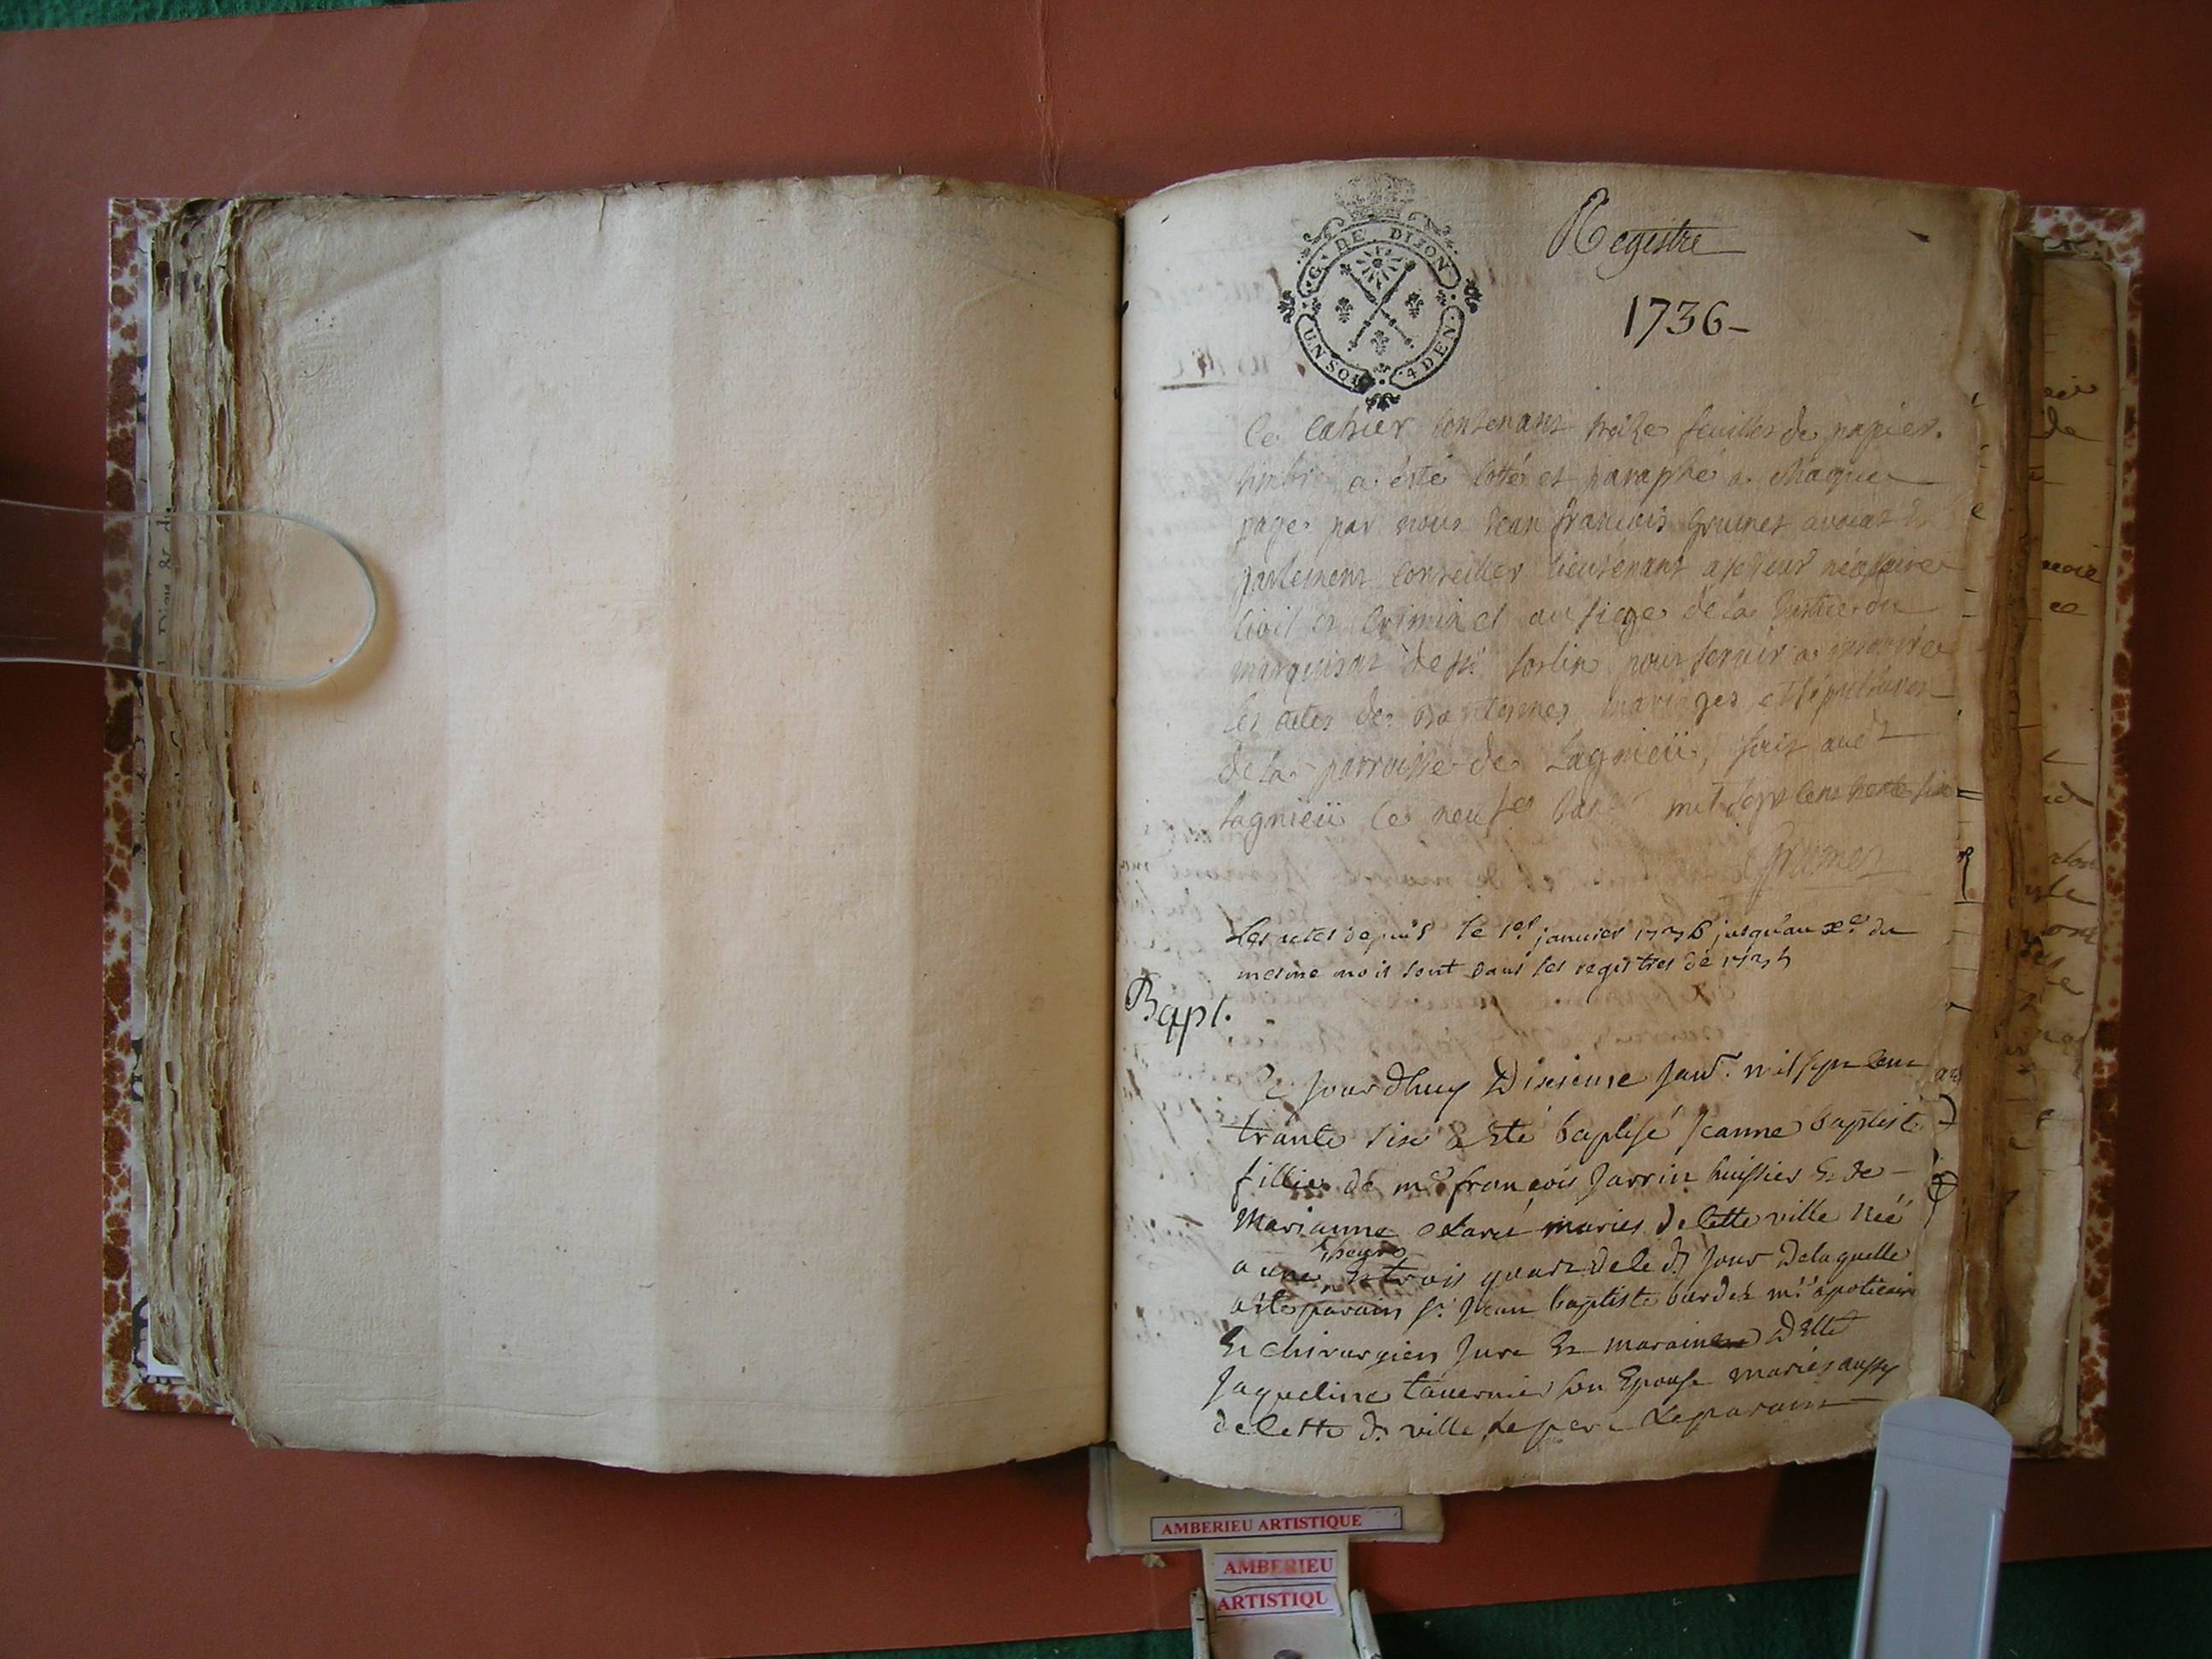 G. DE DIJON
UN SOL 4 DEN.
Registre
1736
Ce cahier contenant treize feuilles de papier
timbré a esté cotté et paraphé a chaque
page par nous Jean françois Grumet avocat en
parlement conseiller lieutenant assesseur nécessaire
civil et criminel au siege de la Justice du
marquisat de st. sorlin pour servir a
les actes de Baptesmes mariages et sépultures
de la parroisse de Lagnieü, fait aud.t
Lagnieü ce neuf.e Janv. mil sept cent trente six
Grumet
Les actes depuis le 1er. janvier 1736 jusqu'au xe. du
mesme mois sont dans les registres de 1735
Bapt.
Ce Jourdhuy Dixieme Janv. mil sept cent
trante six a Eté baptisé Jeanne baptiste
fillie de me françois Jarrin huissier Et de
Marianne mariés de cette ville née
a une heure Et trois quart de le dt Jour De laquelle
a ete parain sr. Jean baptiste bardet mtre apoticaire
Et chirurgien Jure Et maraine Delle
Jaqueline tavernier son Epouse mariés aussy
de cette dt ville Le pere Le parain
AMBERIEU ARTISTIQUE
AMBERIEU
ARTISTIQU